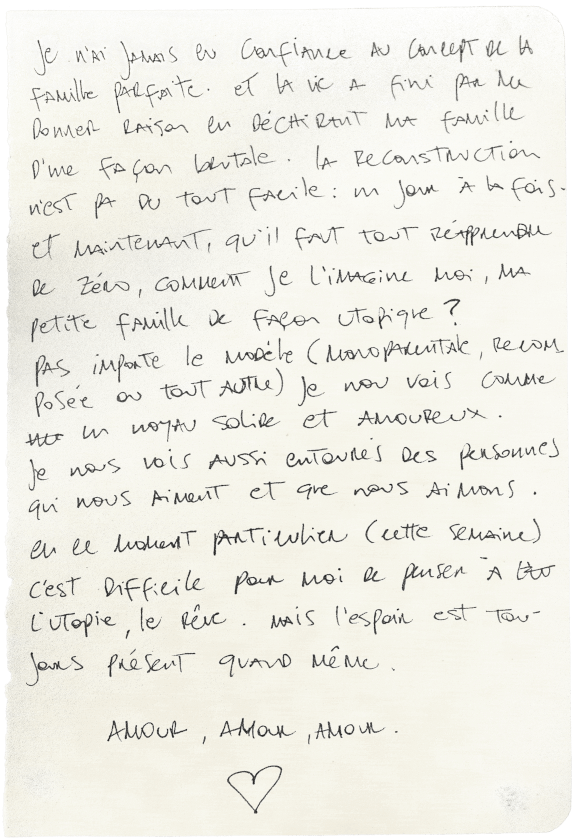 Je n'ai jamais eu confiance au concept de la
famille parfaite. et la vie a fini par me
donner raison en déchirant ma famille
d'une façon brutale. la reconstruction
n'est pa du tout facile : un jour à la fois.
et maintenant, qu'il faut tout réapprendre
de zéro, comment je l'imagine moi, ma
petite famille de façon utopique ?
pas importe le modèle (monoparentale, recom
posée ou tout autre) je nou vois comme
un noyau solide et amoureux.
je nous vois aussi entourés des personnes
qui nous aiment et que nous aimons.
en ce moment particulier (cette semaine)
c'est difficile pour moi de penser à
l'utopie, le rêve. mais l'espoir est tou-
jours présent quand même.
amour, amour, amour.